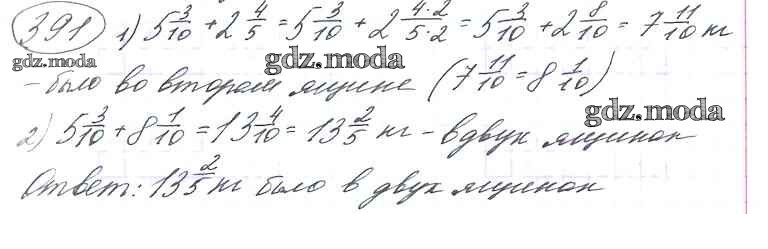 391 1) 5 3/10 + 2 4/5 = 5 3/10 + 2 4·2/5·2 = 5 3/10 + 2 8/10 = 7 11/10 кг
gdz.moda gdz.moda
– было во втором ящике (7 11/10 = 8 1/10)
gdz.moda
2) 5 3/10 + 8 1/10 = 13 4/10 = 13 2/5 кг – в двух ящиках
Ответ: 13 2/5 кг было в двух ящиках